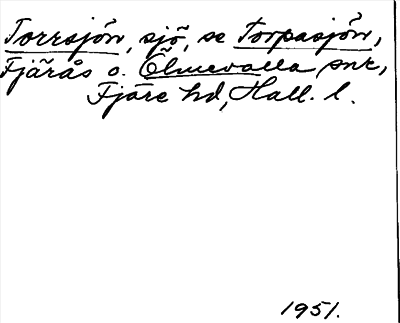 Torrsjön, sjö, se Torpasjön,
Fjärås o. Ölmevalla snr,
Fjäre hd, Hall. l.
1951.